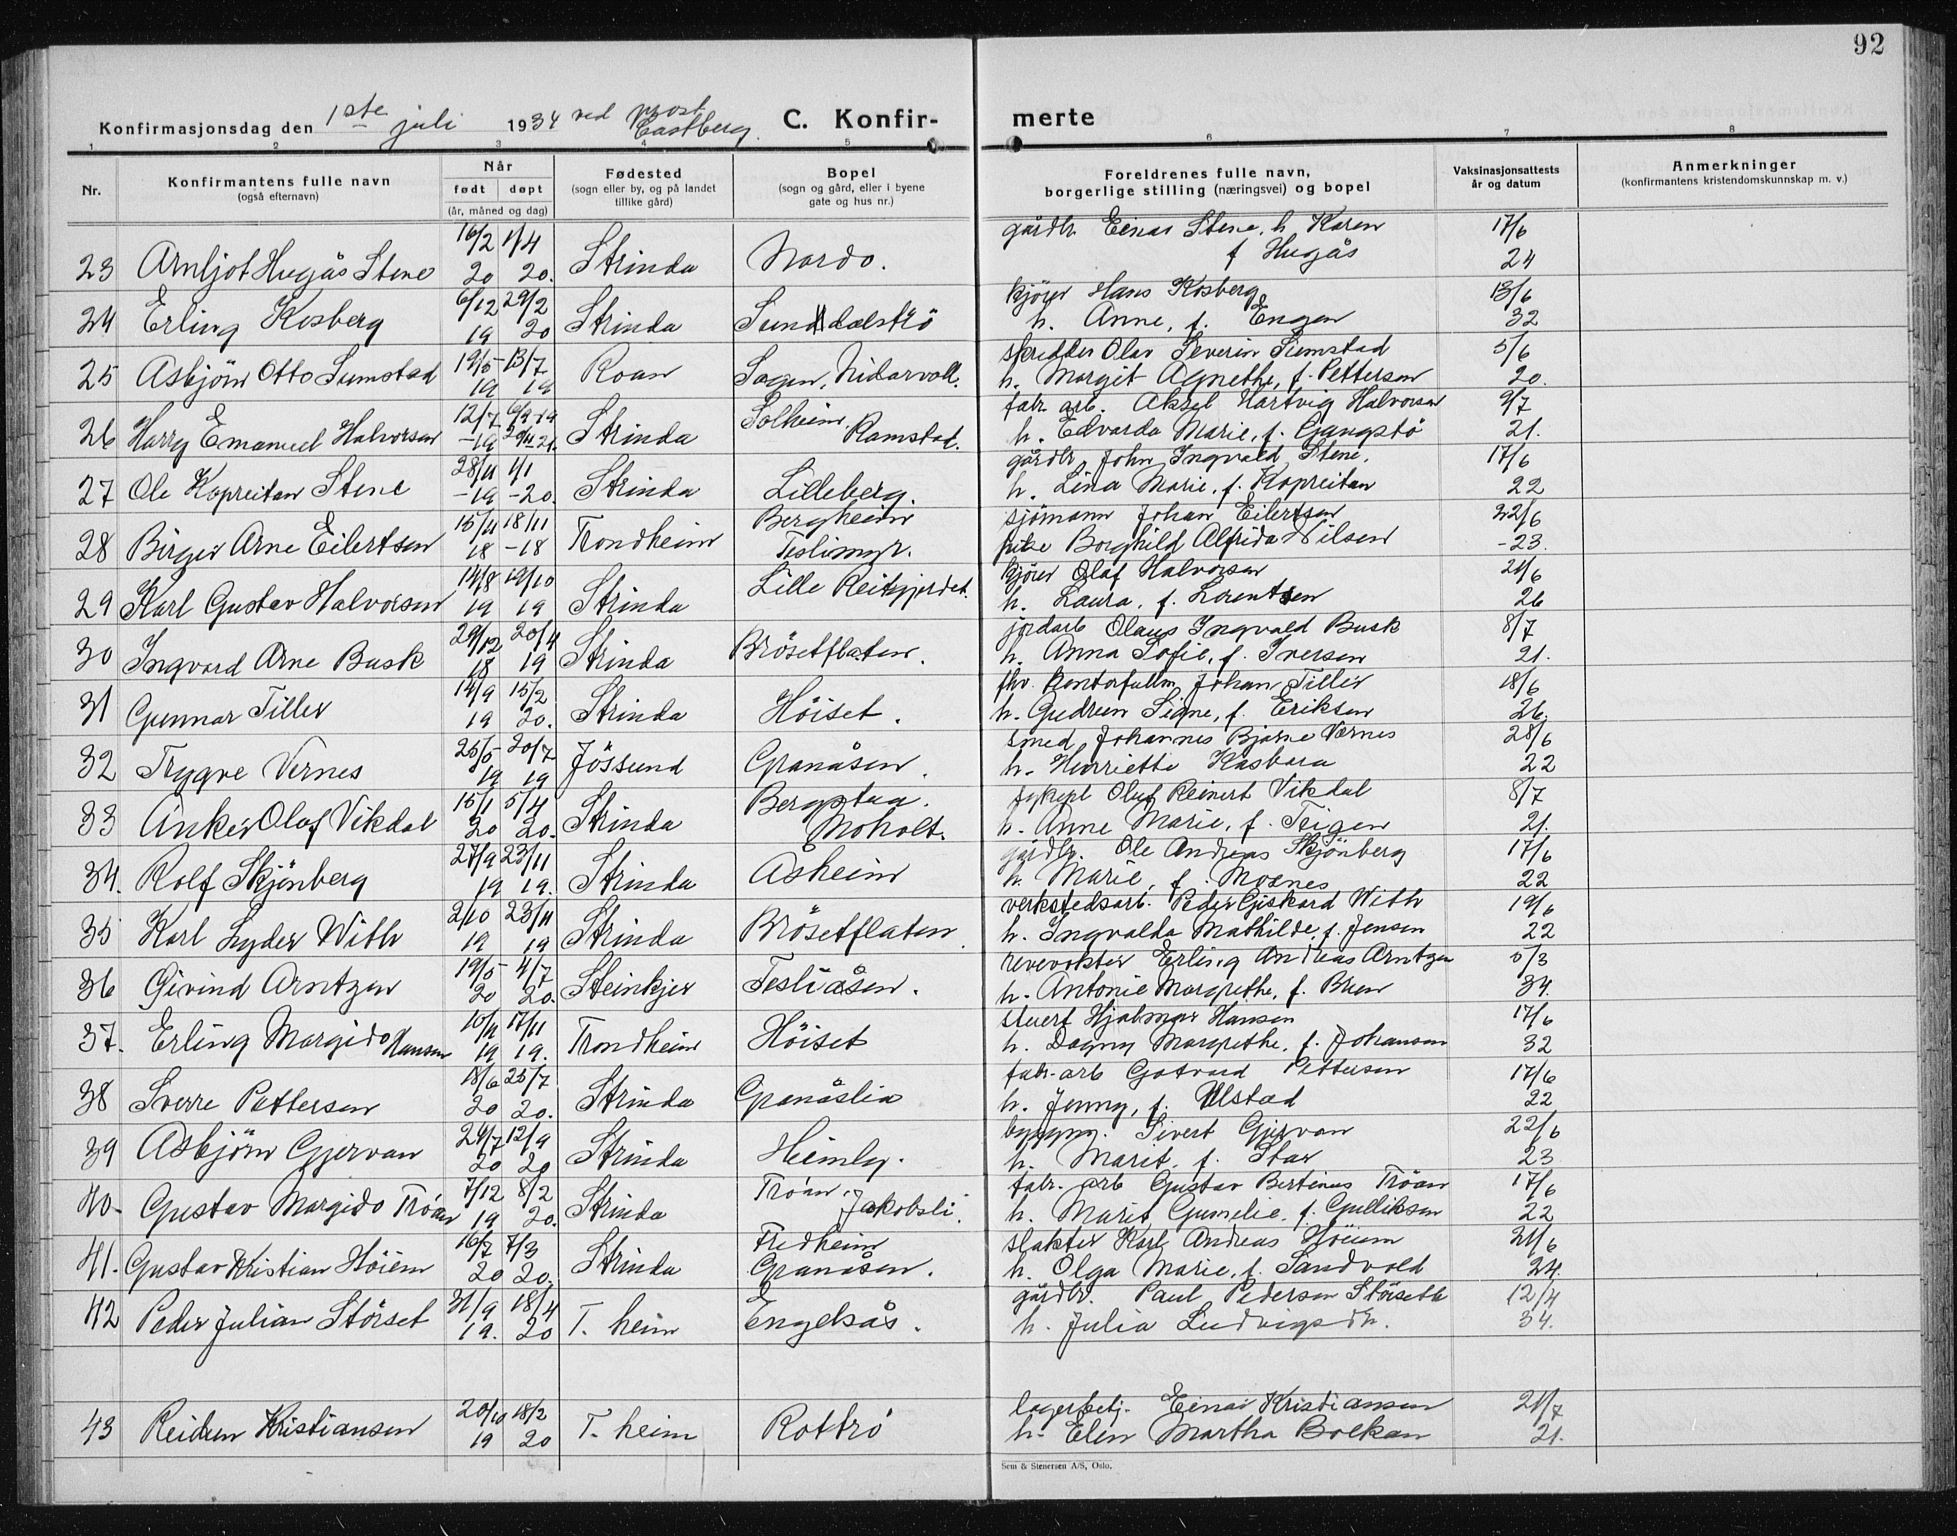 92
Konfirmasjonsdag den 1ste juli 1934 ved prost Castberg. C. Konfir- merte
1 2 3 4 5 6 7 8
Nr. Konfirmantens fulle navn (også efternavn) Når født døpt (år, måned og dag) Fødested (sogn eller by, og på landet tillike gård) Bopel (sogn og gård, eller i byene gate og hus nr.) Foreldrenes fulle navn, borgerlige stilling (næringsvei) og bopel Vaksinasjonsattests år og datum Anmerkninger (konfirmantens kristendomskunnskap m. v.)
23 Arnljot Hugås Stene 16/2 20 1/4 20. Strinda Nardo. gårdbr. Einar Stene, h Karen f Hugås 17/6 24
24 Erling Kosberg 6/12 19 29/2 20 Strinda Sunddalströ kjörer Hans Kosberg h. Anne, f. Engen 13/6 32
25 Asbjörn Otto Sumstad 19/5 19 13/7 19 Roan Sagen, Nidarvoll. skredder Olav Severin Sumstad h. Margit Agnethe, f. Pettersen 5/6 20.
26 Harry Emanuel Halvorsen 12/7 -19 6/9-19 29/4 21. Strinda Solheim, Ramstad. fabr. arb. Aksel Hartvig Halvorsen h. Edvarda Marie, f. Gangstö 9/7 21.
27 Ole Kopreitan Stene 28/11 -19 1/1 -20. Strinda Lilleberg. gårdbr. John Ingvald Stene, h. Lina Marie, f. Kopreitan 17/6 22
28 Birger Arne Eilertsen 15/11 18 18/11 -18 Trondheim Bergheim Teslimyr. sjömann Johan Eilertsen pike Borghild Alfrida Nilsen 22/6 -23.
29 Karl Gustav Halvorsen 14/8 19 19/10 19 Strinda Lille Reitgjerdet. kjörer Olaf Halvorsen h. Laura, f. Lorentsen 21/6 26
30 Ingvard Arne Busk 29/12 18 20/4 19 Strinda Brösetflaten. jordarb Olaus Ingvald Busk h. Anna Sofie, f. Iversen 8/7 21.
31 Gunnar Tiller 14/9 19 15/2 20. Strinda Höiset. fhv. kontorfullm. Johan Tiller h. Gudrun Signe, f. Eriksen 18/6 26.
32 Trygve Vernes 25/5 19 20/7 19 Jössund Granåsen. smed Johannes Bjarne Vernes h. Henriette Kasbara 28/6 22
33 Anker Olaf Vikdal 15/1 20 5/4 20. Strinda Bergstua. Moholt. Oluf Reinert Vikdal h. Anne Marie, f. Teigen 8/7 21.
34. Rolf Skjönberg 27/9 19 23/11 19. Strinda Åsheim gårdbr. Ole Andreas Skjönberg h. Marie, f. Moenes 17/6 22
35 Karl Lyder With 2/10 19 23/11 19 Strinda Brösetflaten. verkstedsarb. Peder Giskard With h. Ingvalda Mathilde, f. Jensen 19/6 22
36 Eivind Arntzen 19/5 20 4/7 20. Steinkjer Tesliåsen. revevokter Erling Andreas Arntzen h. Antonie Margrethe, f. Buen 5/3 34.
37. Erling Margido Hansen 10/11 19 17/11 19. Trondheim Höiset stuert Hjalmar Hansen h. Dagny Margrethe, f. Johansen 17/6 32
38 Sverre Pettersen 18/6 20 25/7 20. Strinda Granåslia fabr. arb Gotvard Pettersen h. Jenny, f. Ulstad 17/6 22
39 Asbjörn Gjervan 24/7 20 12/9 20 Strinda Heimly. byggm. Sivert Gjervan h. Marit, f. Stav 22/6 23
40. Gustav Margido Tröan 7/12 19 8/2 20. Strinda Tröan, Jakobsli. fabr. arb Gustav Bertinus Tröan h. Marit Gumelie, f. Gulliksen 17/6 22
41. Gustav Kristian Höiem 16/7 20 7/3 20. Strinda Fredheim Granåsen. slakter Karl Andreas Höiem h. Olga Marie, f. Sandvold 21/6 24.
42 Peder Julian Störset 31/9 19. 18/4 20 T. heim Engelsås. gårdbr. Paul Pedersen Störseth h. Julia Ludvigsdtr. 12/4 34.
43 Reidun Kristiansen 20/10 19 18/2 20 T. heim Rotträ lagerbetj. Einar Kristiansen h. Elen Martha Bolkan 21/7 21.
Sem & Stenersen A/S, Oslo.